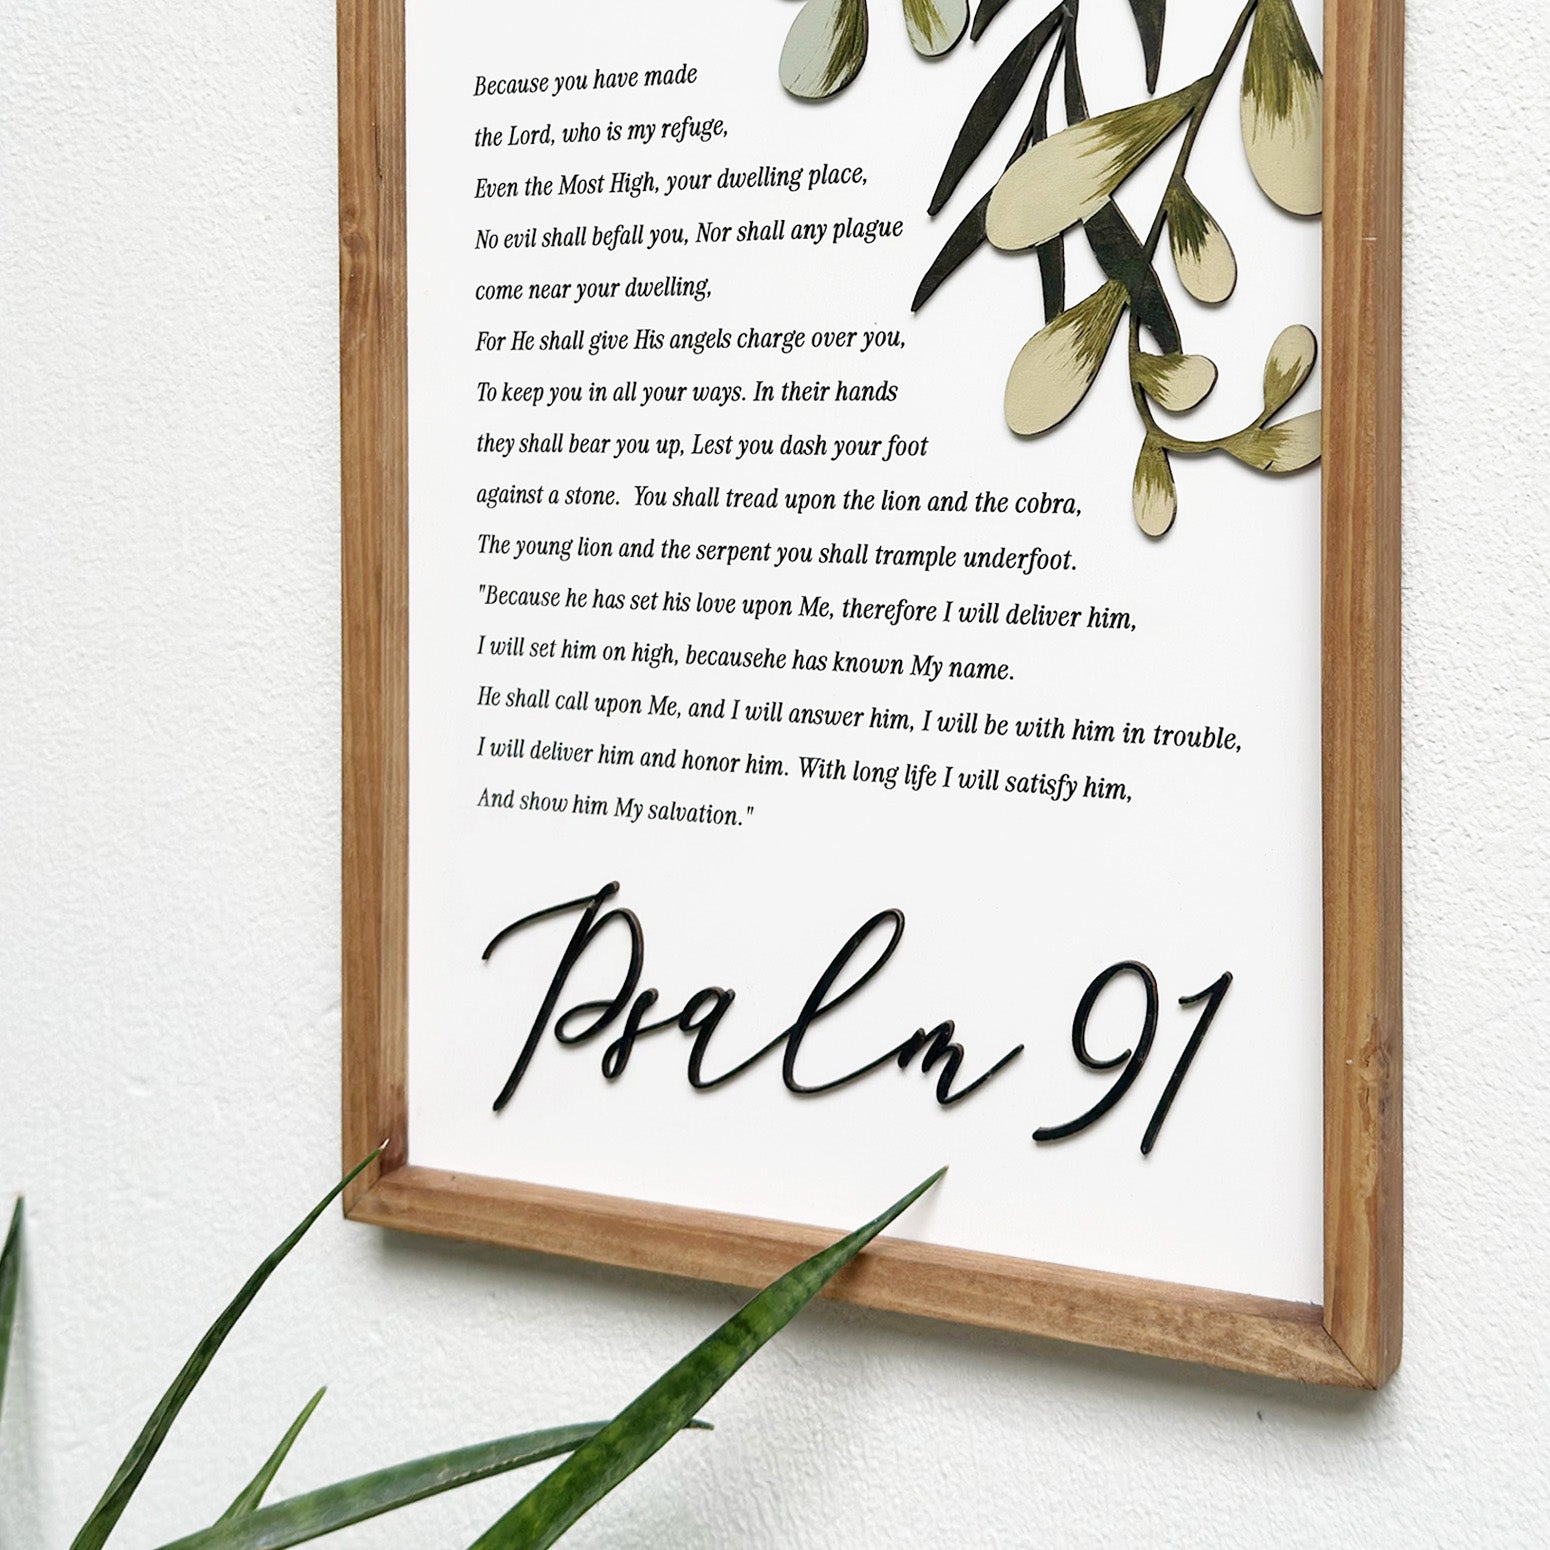 Because you have made
the Lord, who is my refuge,
Even the Most High, your dwelling place,
No evil shall befall you, Nor shall any plague
come near your dwelling,
For He shall give His angels charge over you,
To keep you in all your ways. In their hands
they shall bear you up, Lest you dash your foot
against a stone.  You shall tread upon the lion and the cobra,
The young lion and the serpent you shall trample underfoot.
"Because he has set his love upon Me, therefore I will deliver him,
I will set him on high, becausehe has known My name.
He shall call upon Me, and I will answer him, I will be with him in trouble,
I will deliver him and honor him. With long life I will satisfy him,
And show him My salvation."
Psalm 91